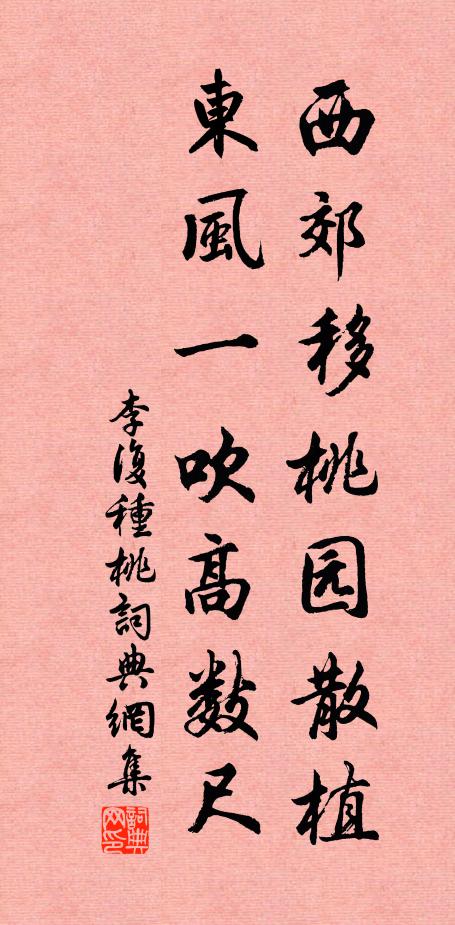 西郊移桃园散植
東風一吹高数尺
李復種桃詞典網集
詞典网印